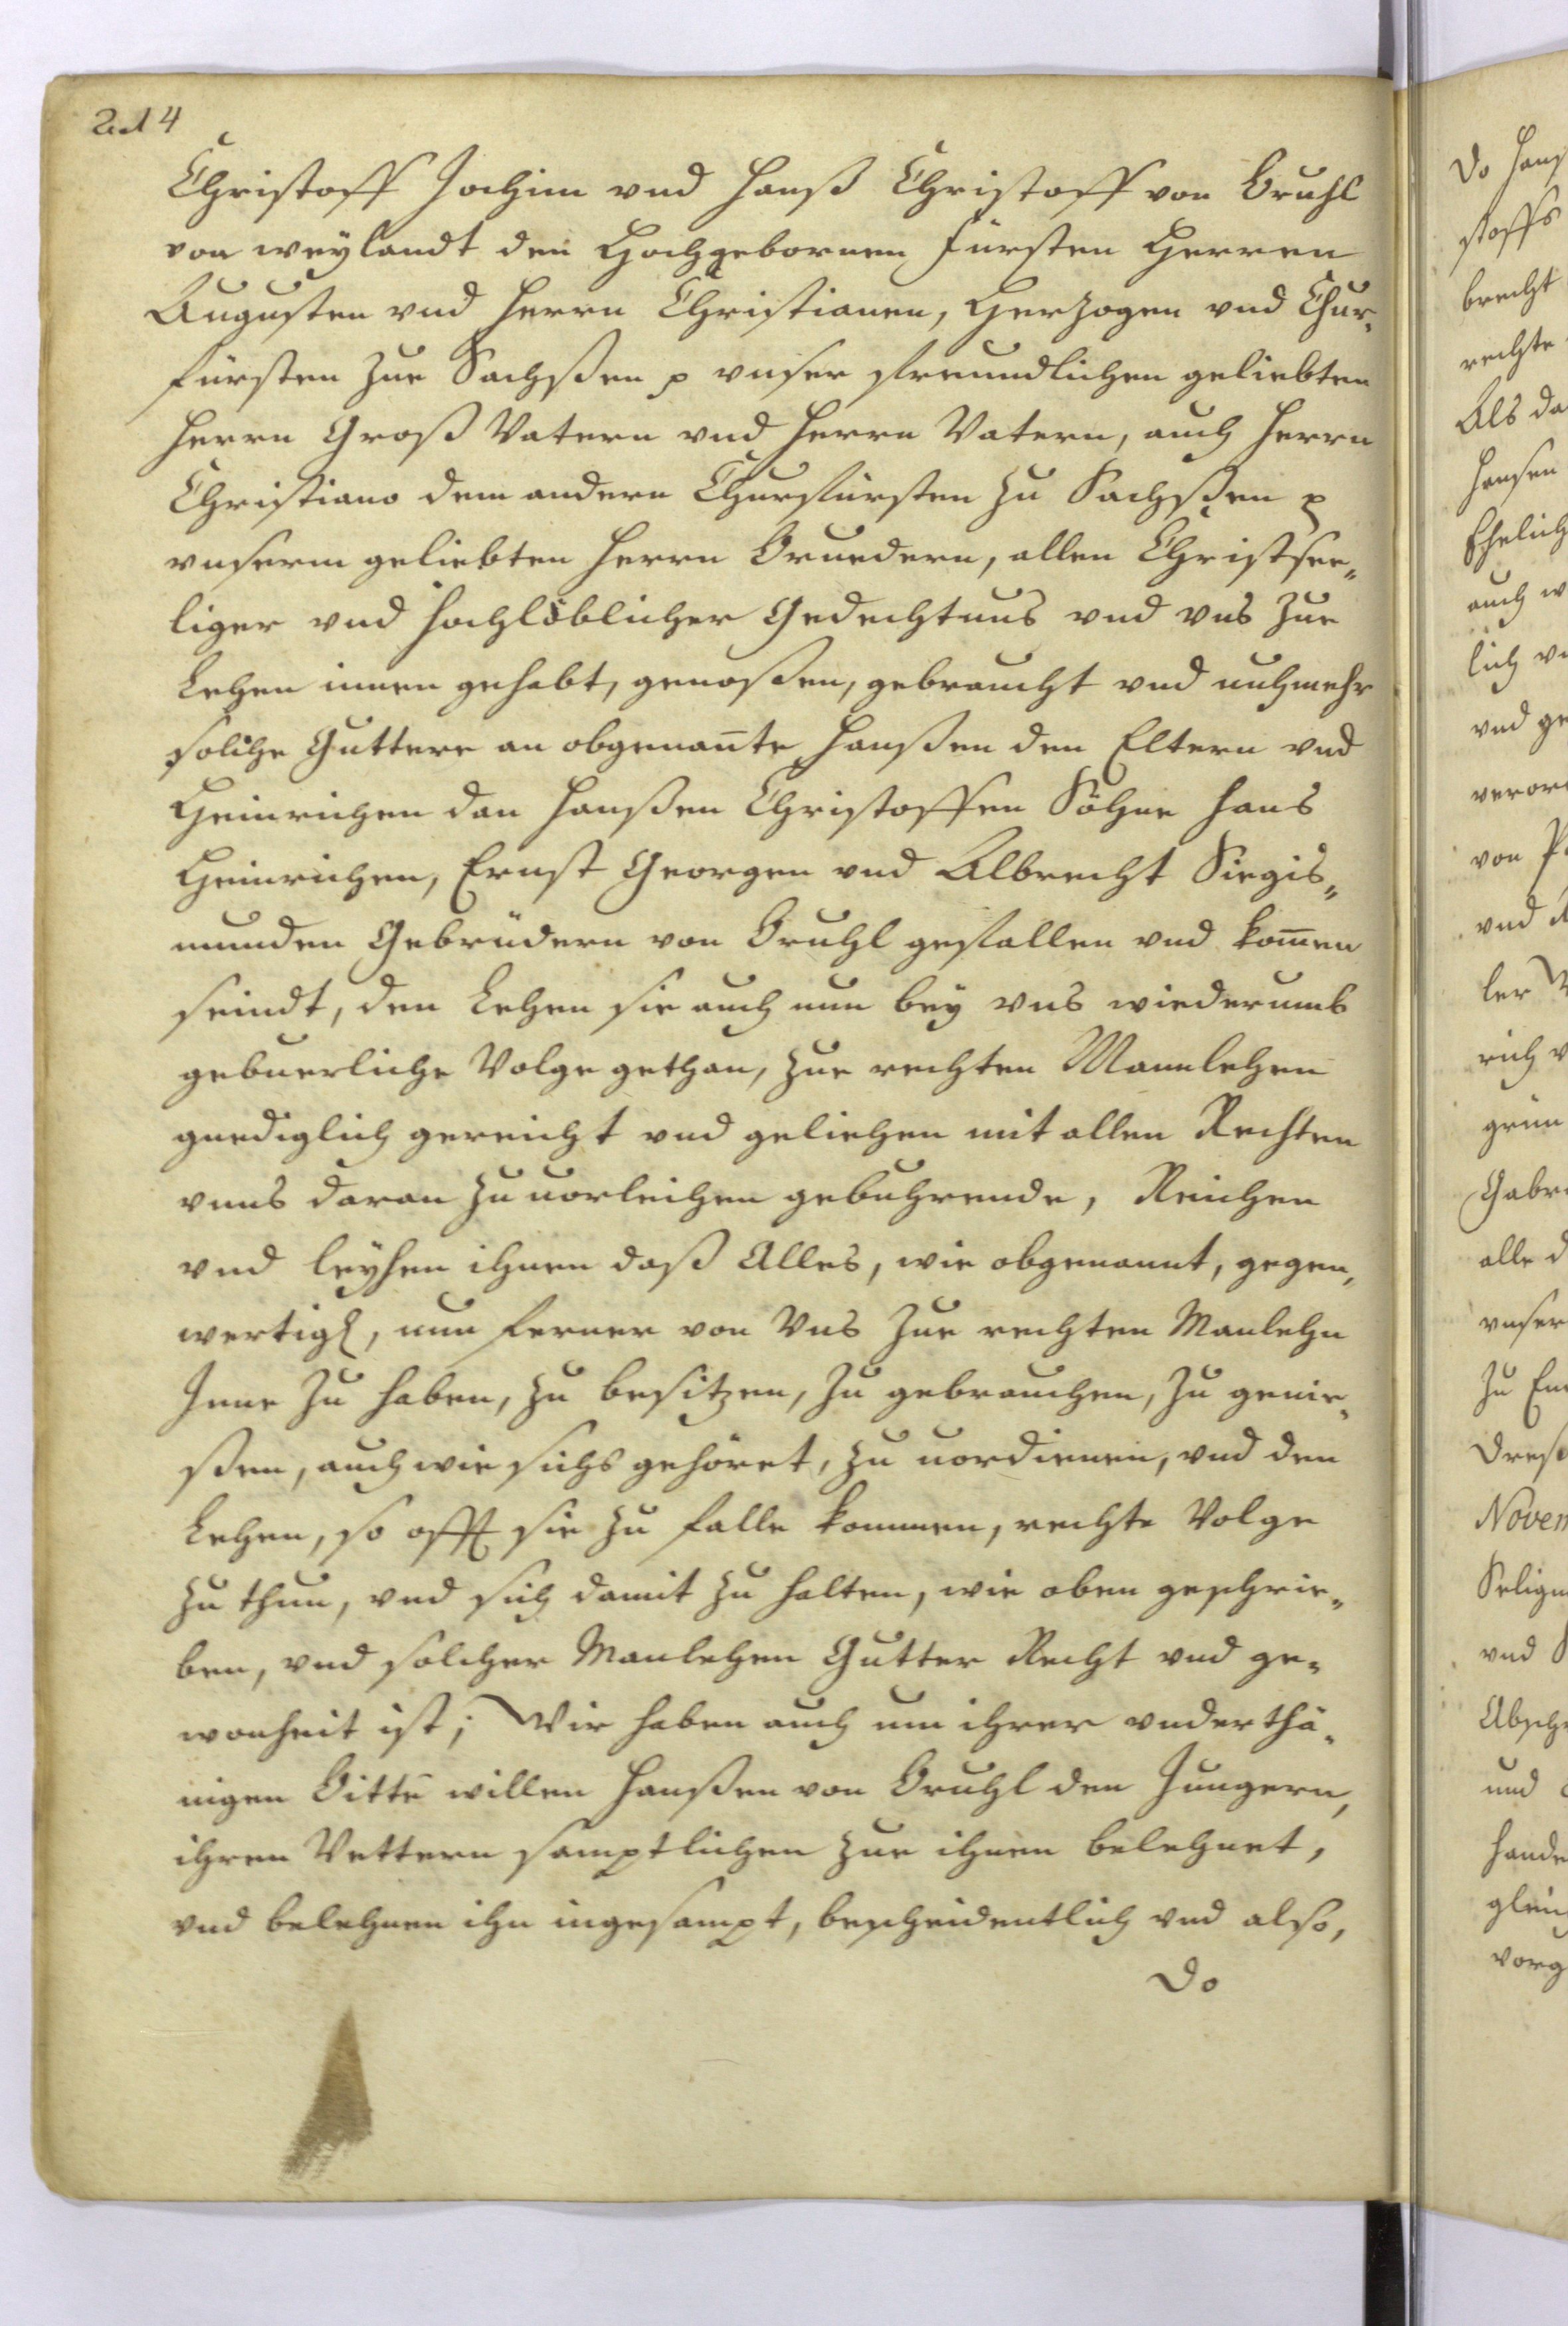 4
Christoff Jochim vnd Hanß Christoff von Bruhl
von weylandt den Hochgebornen Fürsten Herren
Augusten vnd Herrn Christianen, Herzogen vnd Chur-
fürsten zue Sachßen p vnser freundlichen geliebten
Herrn Groß Vatern vnd Herrn Vatern, auch Herrn
Christiano dem andern Churfürsten zu Sachßen p
vnserm geliebten Herrn Bruedern, allen Christsee-
liger vnd hochlöblicher Gedechtnus vnd vns zue
Lehen innen gehabt, genoßen, gebraucht vnd nuhmehr
solche Guttere an obgenan̄te Hanßen den Eltern vnd
Heinrichen dan Hanßen Christoffen Söhne Hans
Heinrichen, Ernst Georgen vnd Albrecht Siegis-
munden Gebrüdern von Bruhl gefallen vnd kom̄en
seindt, den Lehen sie auch nun bey vns wiederumb
gebuerliche Volge gethan, zue rechten Mannlehen
gnediglich gereicht vnd geliehen mit allen Rechten
vnns daran zuuorleihen gebuhrende, Reichen
vnd leyhen ihnen daß Alles, wie obgenannt, gegen-
wertigl, nun ferner von Vns zue rechten Manlehn
Inne zu haben, zu besitzen, zu gebrauchen, zu genie-
ßen, auch wie sichs gehöret, zu uordienen, vnd den
Lehen, so offt sie zu falle kommen, rechte Volge
zu thun, vnd sich damit zu halten, wie oben geschrie-
ben, vnd solcher Manlehen Gutter Recht vnd ge-
wonheit ist; Wir haben auch um ihrer vnderthä-
nigen Bitte willen Hanßen von Bruhl den Jungern,
ihren Vettern samptlichen zue ihnen belehnet,
vnd belehnen ihn ingesampt, bescheidentlich vnd also,
Do
Do Hans
stoffs
brecht
rechte
Als da
Hansen
Ehelich
auch w
lich
vnd ge
veror
von
vnd
ler
rich
grün
Gabr
alle d
vnser
Zu
Dres
Novem
Selig
vnd
Absch
und
Hande
gleic
vorg